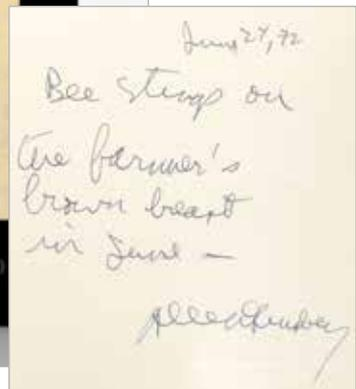 June 24, 72
Bee stings on
the farmer's
brown breast
in June —
Allen Ginsberg